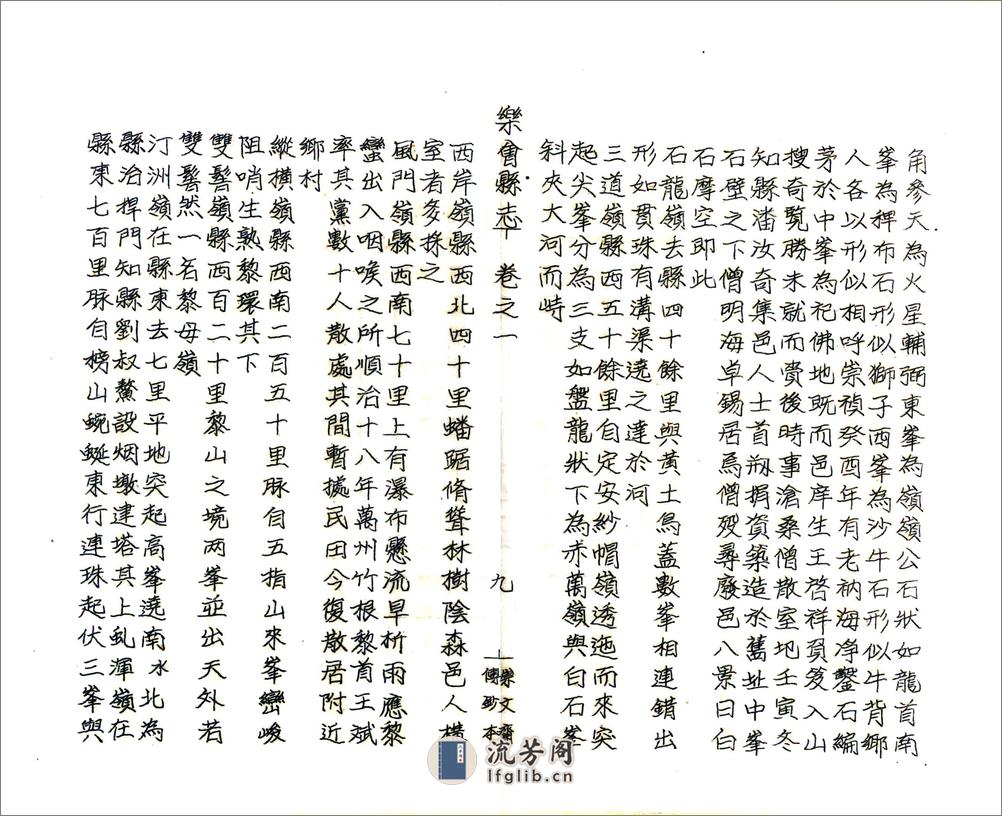 角參天為火星輔弼東峯為嶺嶺公石狀如龍首南
峯為稗布石形似獅子西峯為沙牛石形似牛背鄉
人各以形似相呼崇禎癸酉年有老衲海净鑿石編
茅於中峯為祀佛地既而邑庠生王啓祥頁笈入山
搜奇覧勝未就而賁後時事滄桑僧散室圯壬寅冬
知縣潘汝奇集邑人士首捐資築造於舊址中峯
石壁之下僧明海卓錫居焉僧殁尋廢邑八景曰白
石摩空即此
石龍嶺去縣四十餘里與黃土鳥蓋數峯相連錯出
形如貫珠有溝渠遶之達於河
三道嶺縣西五十餘里自定安紗帽嶺透迤而來突
起尖峯分為三支如盤龍狀下為赤萬嶺與白石峯
斜夾大河而峙
樂會縣志 卷之一 九
樂文齋
傳鈔本
西岸嶺縣西北四十里蟠踞脩聳林樹陰森邑人構
室者多採之
風門嶺縣西南七十里上有瀑布懸流旱祈雨應黎
蠻出入咽喉之所順治十八年萬州竹根黎首王斌
率其黨數十人散處其間暫擄民田今復散居附近
鄉村
縱橫嶺縣西南二百五十里脉自五指山來峯巒峻
阻哨生熟黎環其下
雙髻嶺縣西百二十里黎山之境两峯並出天外若
雙髻然一名黎母嶺
汀洲嶺在縣東去七里平地突起高峯遶南水北為
縣治捍門知縣劉叔鰲設烟墩建塔其上虬渾嶺在
縣東七百里脉自榜山蜿蜒東行連珠起伏三峯與
流芳阁
lfglib.cn